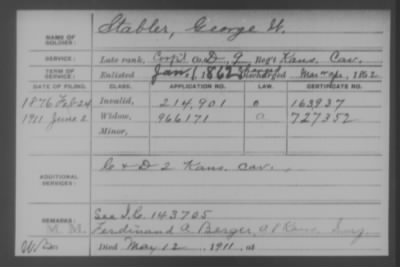 NAME OF SOLDIER: Stabler, George W.
SERVICE: Late rank, Corp'l Co. D, 9 Reg't Kans. Cav.
TERM OF SERVICE: Enlisted Jan. 1, 1862 Discharged Mar 1862
DATE OF FILING. CLASS. APPLICATION NO. LAW. CERTIFICATE NO.
1876 Feb 24 Invalid, 214,901 163937
1911 June 2 Widow, 966171 727352
Minor,
ADDITIONAL SERVICES: C & D 2 Kans. Cav.
REMARKS: See I.C. 143705
M M Ferdinand A. Berger, Kans. Inf.
Died May 12, 1911, at